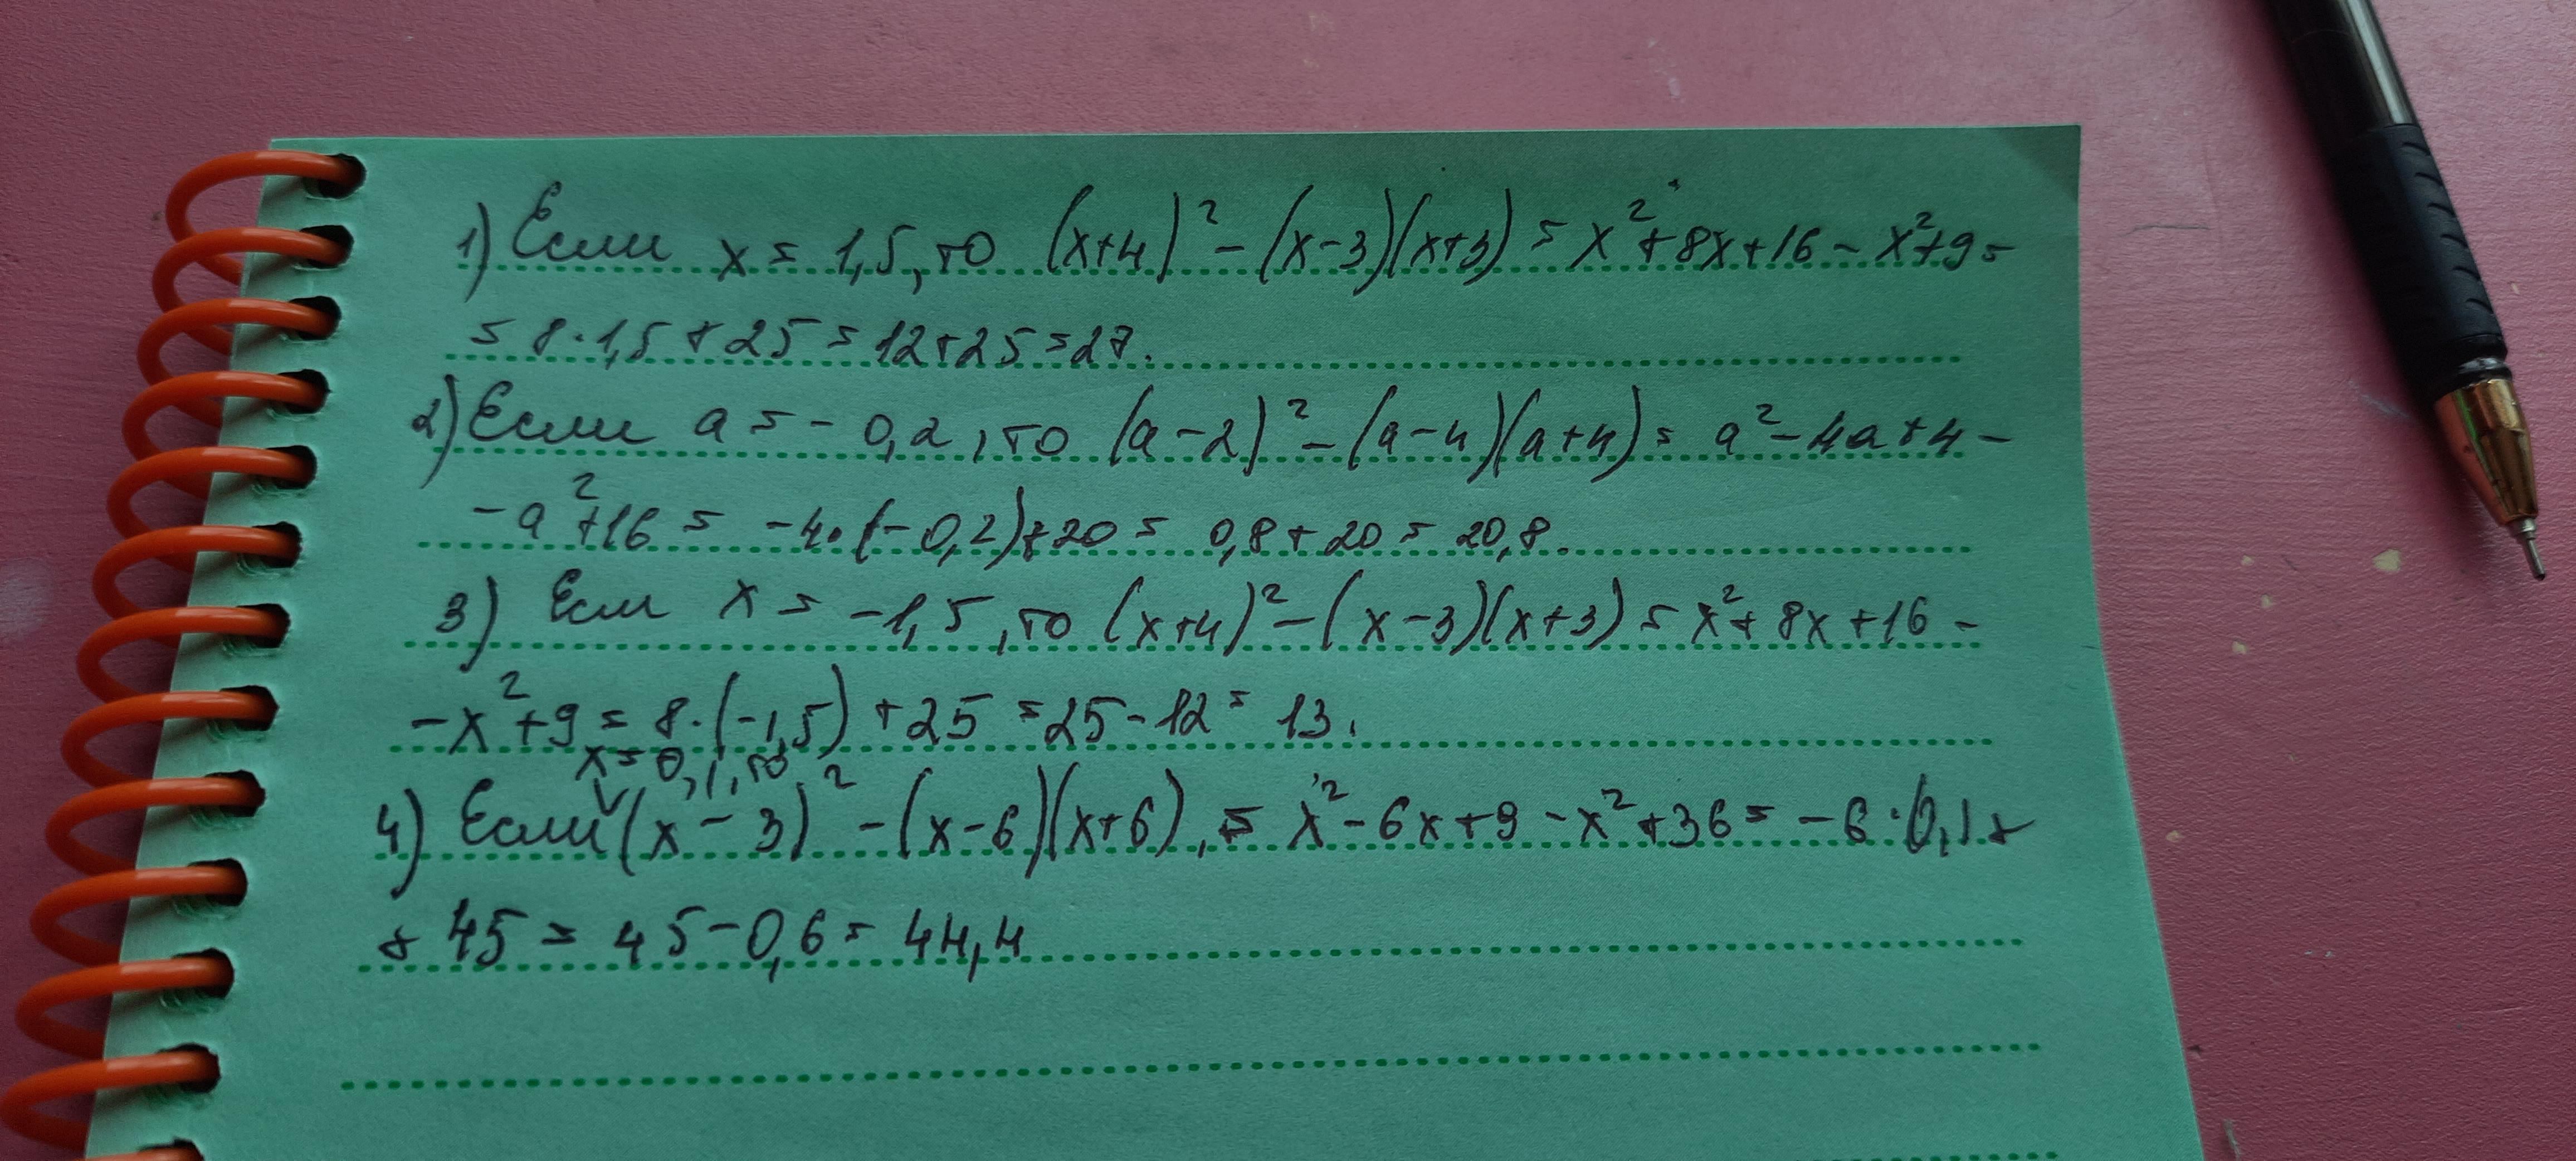 1) Если x = 1,5, то (x+4)² - (x-3)(x+3) = x² + 8x + 16 - x² + 9 =
= 8·1,5 + 25 = 12 + 25 = 27.
2) Если a = - 0,2, то (a - 2)² - (a - 4)(a + 4) = a² - 4a + 4 -
- a² + 16 = -4·(-0,2) + 20 = 0,8 + 20 = 20,8.
3) Если x = -1,5, то (x+4)² - (x - 3)(x + 3) = x² + 8x + 16 -
- x² + 9 = 8·(-1,5) + 25 = 25 - 12 = 13.
x = 0,1, то
4) Если (x - 3)² - (x - 6)(x + 6), = x² - 6x + 9 - x² + 36 = - 6·0,1 +
+ 45 = 45 - 0,6 = 44,4